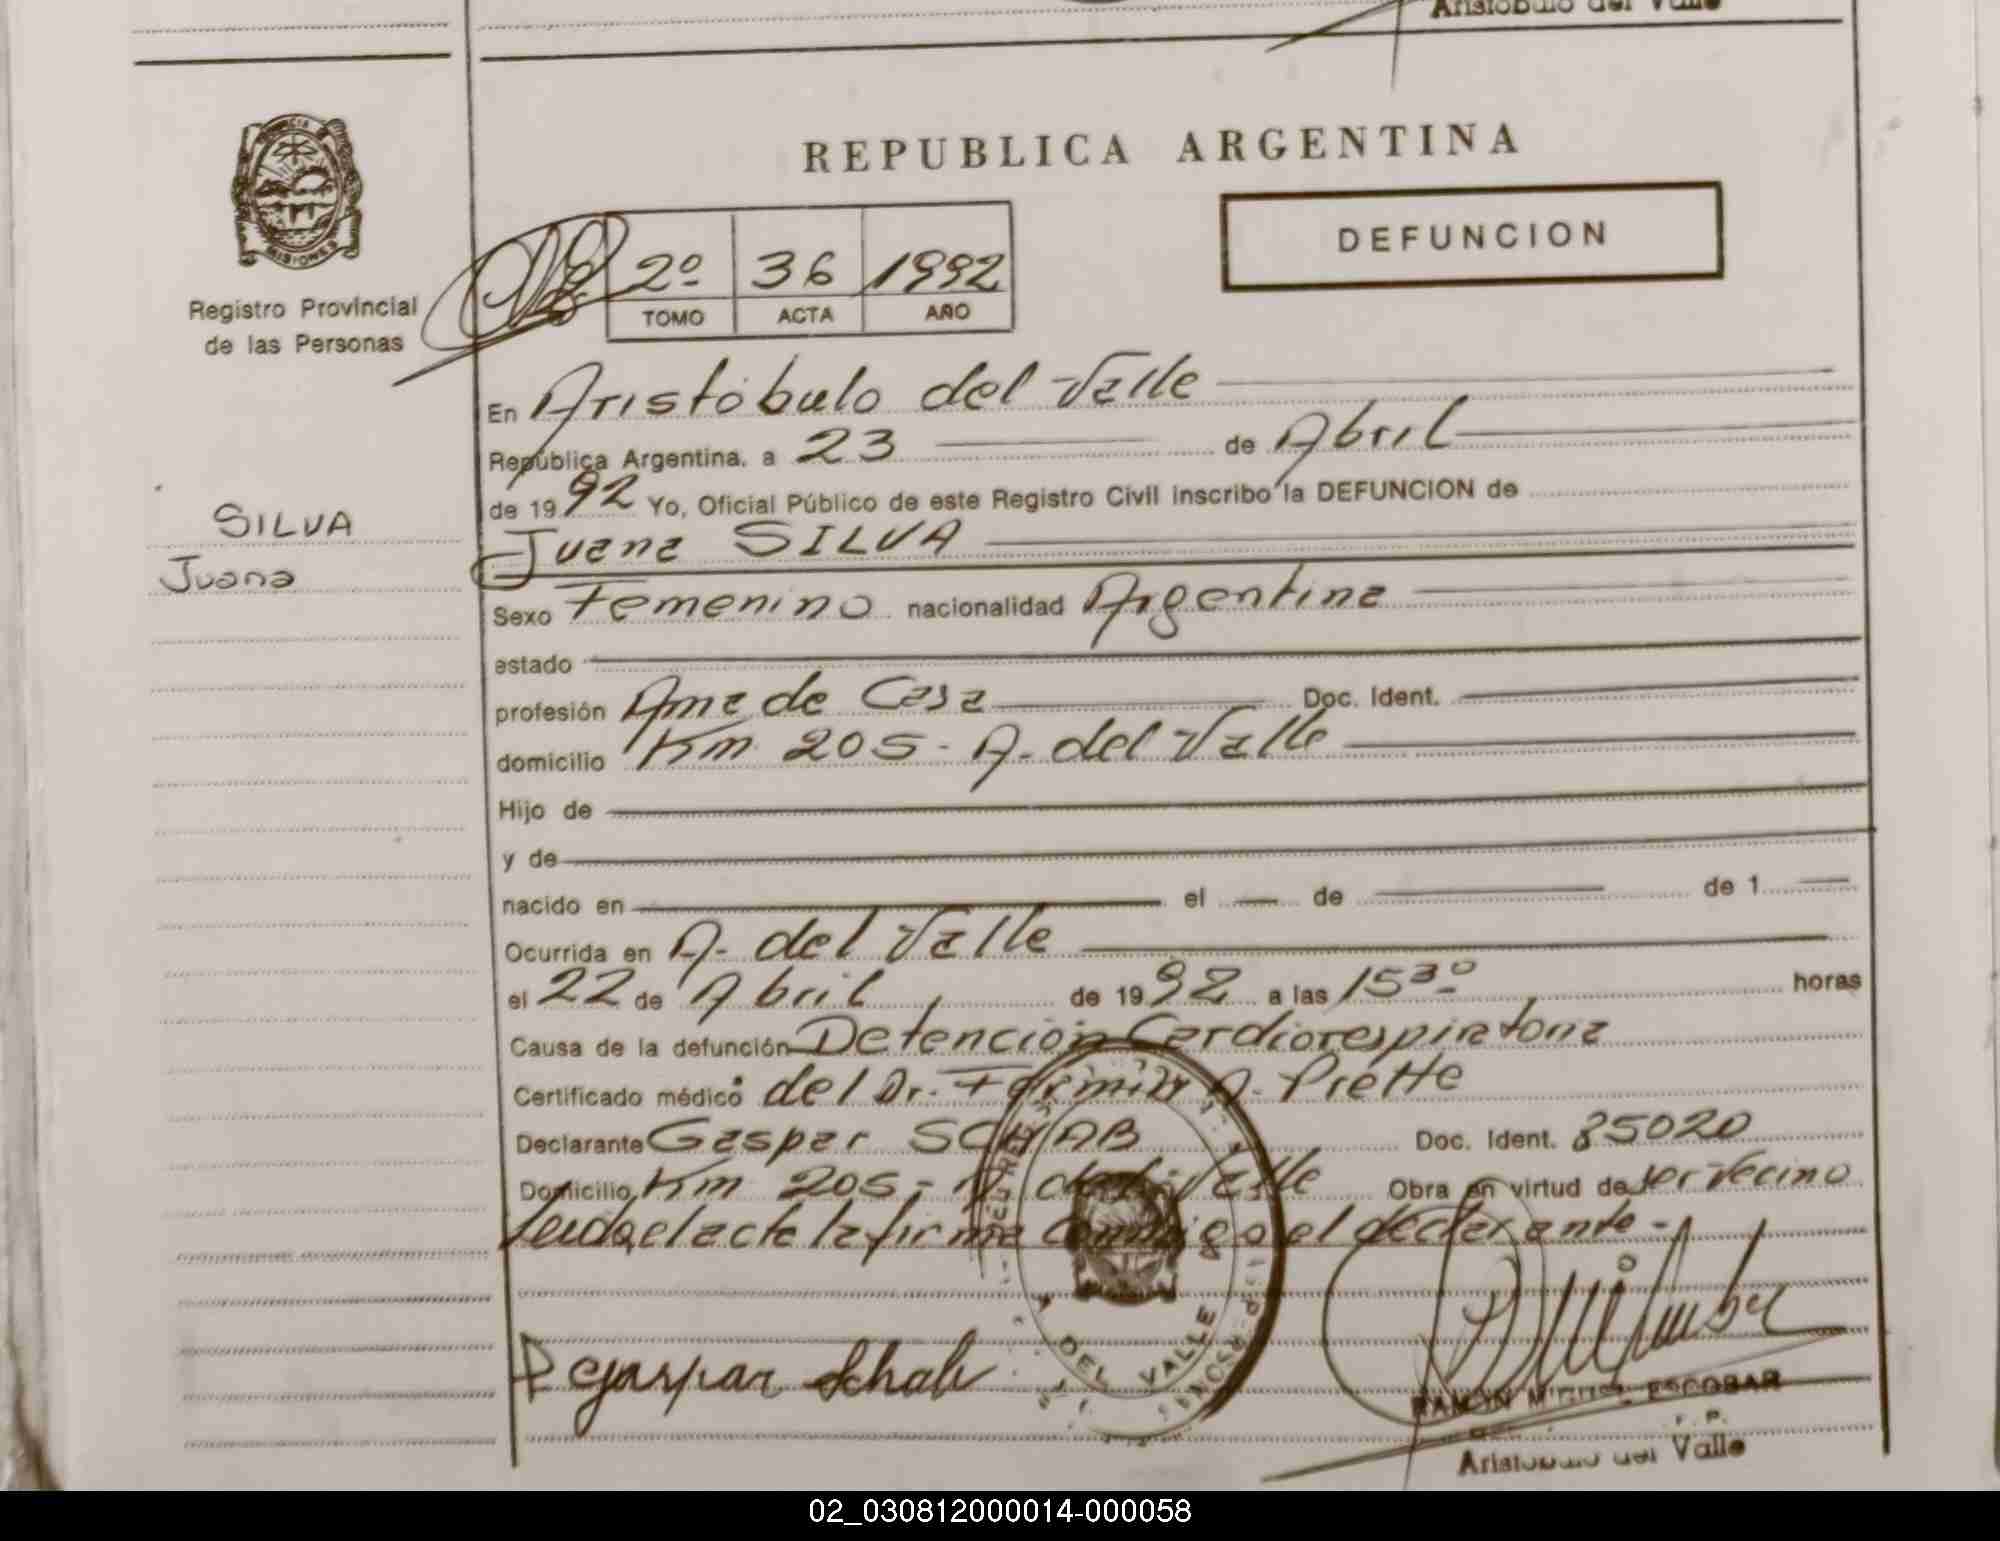 Aristóbulo del Valle
REPUBLICA ARGENTINA
DEFUNCION
MISIONES
Registro Provincial
de las Personas
2º 36 1992
TOMO ACTA AÑO
En Aristóbulo del Valle
República Argentina, a 23 de Abril
de 1992 Yo, Oficial Público de este Registro Civil inscribo la DEFUNCION de
SILVA
Juana
Juana SILVA
Sexo Femenino nacionalidad Argentina
estado
profesión Ama de Casa Doc. Ident.
domicilio Km 205 - A. del Valle
Hijo de
y de
nacido en el de de 1
Ocurrida en A. del Valle
el 22 de Abril de 1992 a las 15³⁰ horas
Causa de la defunción Detención Cardiorespiratoria
Certificado médico del Dr. Fermin A. Prette
Declarante Gaspar SCHAB Doc. Ident. 35020
Domicilio Km 205 - A. del Valle Obra en virtud de ser Vecino
Leida el acta la firma conmigo el declarante -
DEL VALLE
Gaspar Schab
RAMON MIGUEL ESCOBAR
Aristóbulo del Valle
02_030812000014-000058